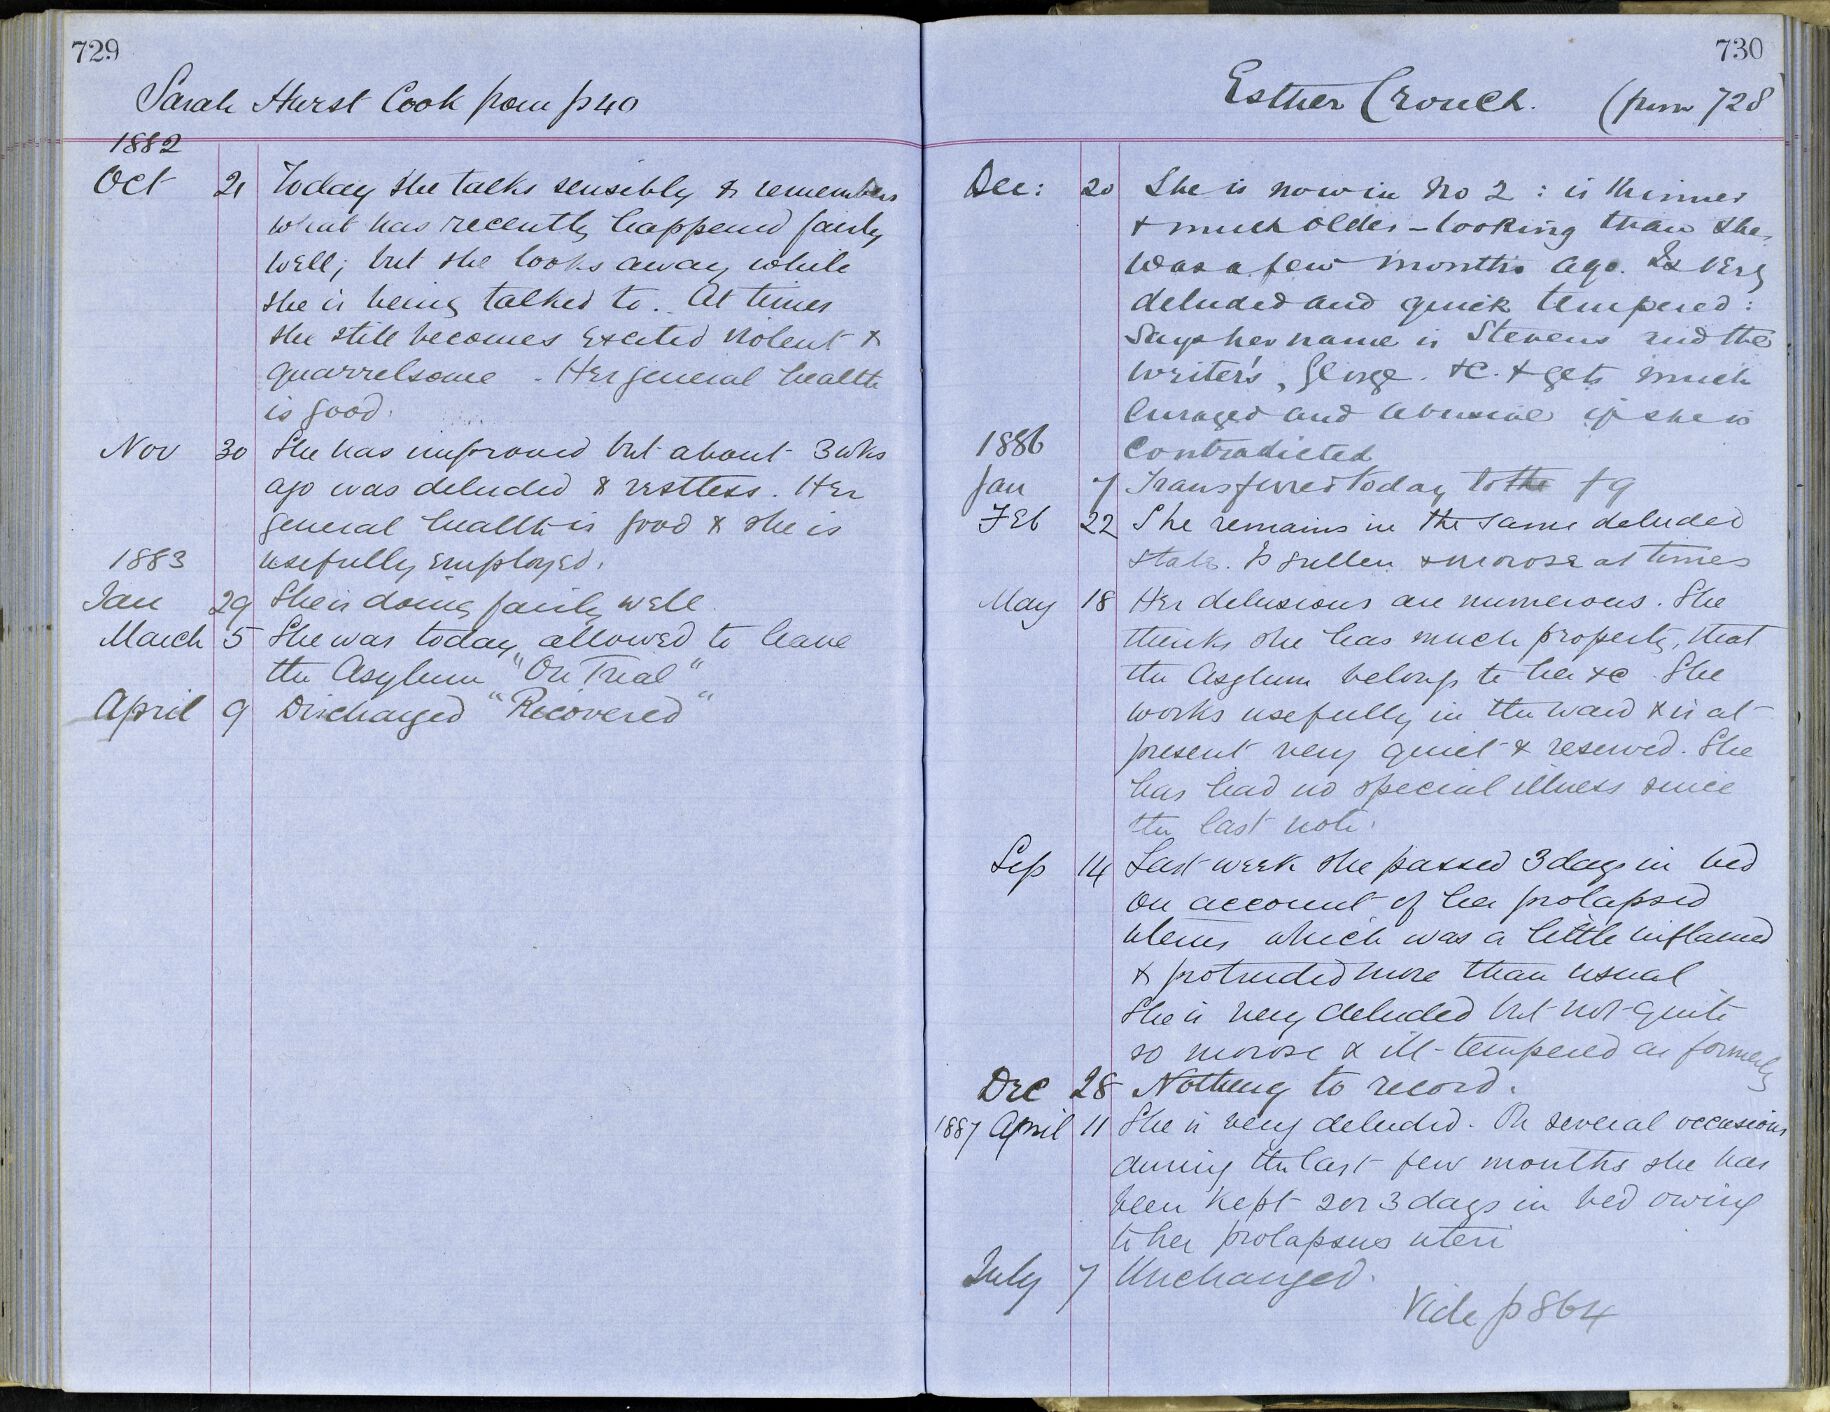 729
Sarah Hurst Cook from p 40
1882
Oct 21 Today she talks sensibly & remembers
what has recently happened fairly
well; but she looks away while
she is being talked to. At times
she still becomes excited violent &
quarrelsome. Her general health
is good.
Nov 30 She has improved but about 3 wks
ago was deluded & restless. Her
general health is good & she is
1883 usefully employed.
Jan 29 She is doing fairly well.
March 5 She was today allowed to leave
the Asylum "On Trial"
April 9 Discharged "Recovered"
730
Esther Crouch. (from 728
Dec: 20 She is now in No 2 : is thinner
& much older-looking than she
was a few months ago. Is very
deluded and quick tempered :
Says her name is Stevens and the
writer's, George. &c. & gets much
enraged and abusive if she is
1886 contradicted
Jan 7 Transferred today to the f 9
Feb 22 She remains in the same deluded
state. Is sullen & morose at times
May 18 Her delusions are numerous. She
thinks she has much property, that
the Asylum belongs to her &c. She
works usefully in the ward & is at
present very quiet & reserved. She
has had no special illness since
the last note.
Sep 14 Last week she passed 3 days in bed
on account of her prolapsed
uterus which was a little inflamed
& protruded more than usual
She is very deluded but not quite
so morose & ill-tempered as formerly
Dec 28 Nothing to record.
1887 April 11 She is very deluded. On several occasions
during the last few months she has
been kept 2 or 3 days in bed owing
to her prolapsus uteri
July 7 Unchanged.
Vide p 864